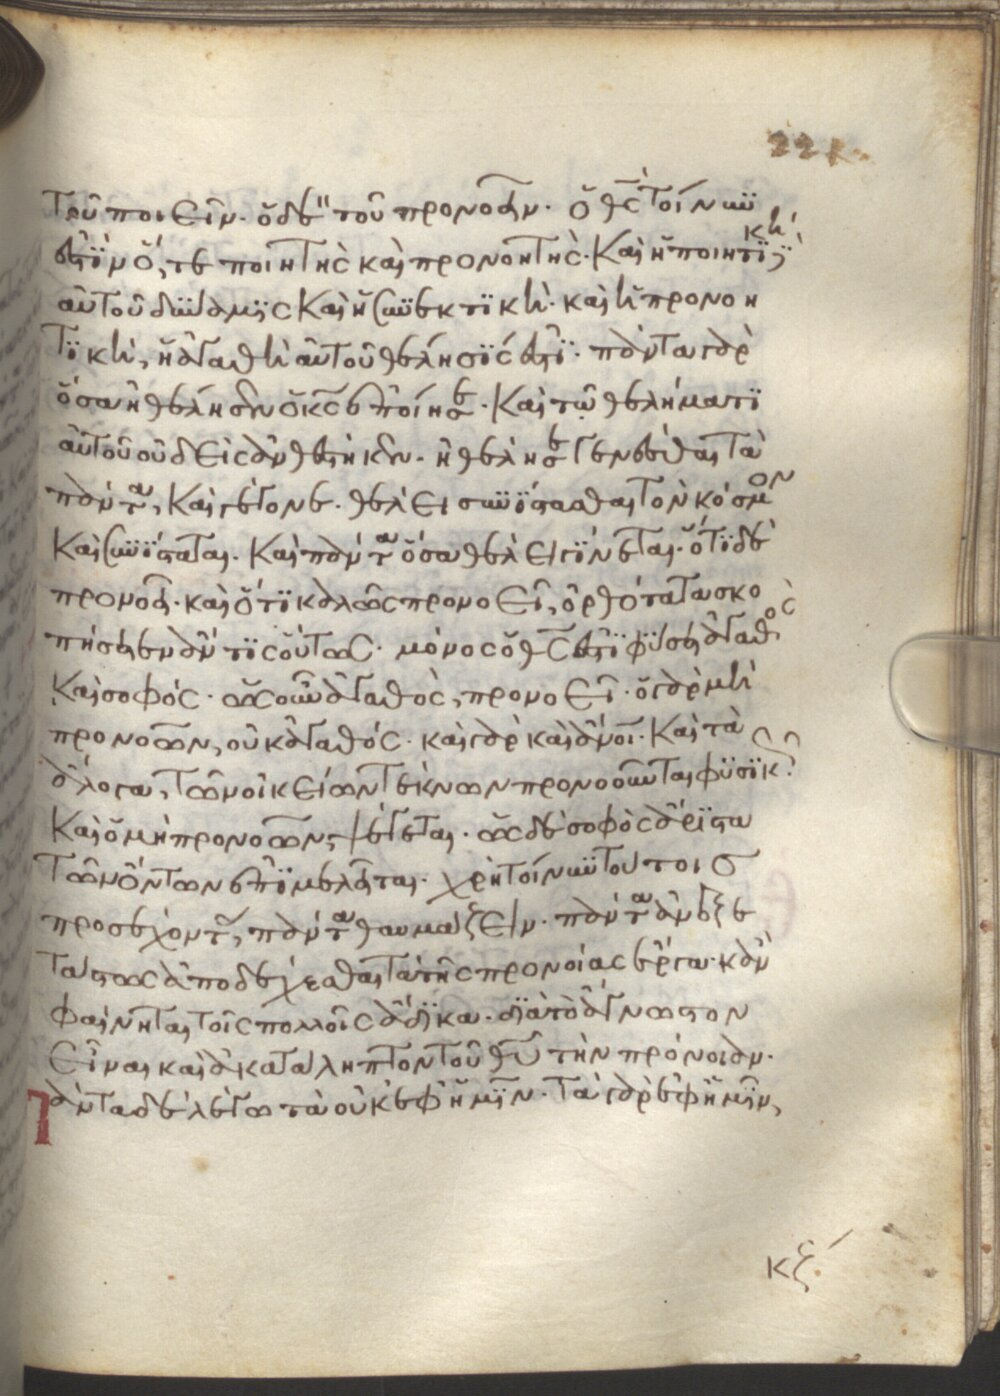 τοῦ ποιεῖν. ὁ δὲ τοῦ προνοεῖν. ὁ θς τοίνυν
ἐστϊν ὅ, τε ποιητὴς καὶ προνοητής. Καὶ ἡ ποιητϊκὴ
αὐτοῦ δύναμϊς Καὶ ἡ συνεκτϊκὴ. καὶ ἡ προνοη
τϊκὴ, ἡ ἀγαθὴ αὐτοῦ θέλησϊς ἐστϊ. πάντα γὰρ
ὅσα ἠθέλησεν ὁ κς ἐποίησε. Καὶ τῷ θελήματϊ
αὐτοῦ οὐδεὶς ἀνθέστηκεν. ἠθέλησε γενέσθαι τὰ
πάντα, Καὶ γέγονε. θέλει συνΐστασθαι τὸν κόσμον
Καὶ συνΐσταται. Καὶ πάντα ὅσα θέλει γΐνεται. ὅτϊ δὲ
προνοεῖ. καὶ ὅτϊ καλῶς προνοεῖ, ὀρθότατα σκο
πήσειεν ἄν τϊς οὕτως. μόνος ὁ θς ἐστϊ φύσει ἀγαθὸς
Καὶ σοφός. ὡς οὖν ἀγαθὸς, προνοεῖ. ὁ γὰρ μὴ
προνοῶν, οὐκ ἀγαθός. καὶ γὰρ καὶ ἄνοι. Καὶ τὰ
ἄλογα, τῶν οἰκείων τέκνων προνοοῦνται φϋσϊκῶς.
Καὶ ὁ μὴ προνοῶν, ψέγεται. ὡς δὲ σοφὸς ἄρϊστα
τῶν ὄντων ἐπϊμελεῖται. χρὴ τοίνυν τούτοις
προσέχοντας, πάντα θαυμάζειν. πάντα ἀνεξε
τάστως ἀποδέχεσθαι τὰ τῆς προνοίας ἔργα. κἂν
φαίνηται τοῖς πολλοῖς ἄδϊκα. διὰ τὸ ἄγνωστον
εἶναι καὶ ἀκατάληπτον τοῦ θυ τὴν πρόνοιαν.
Πάντα δὲ λέγω τὰ οὐκ ἐφ ἡμῖν. τὰ γὰρ ἐφ ἡμῖν,
κζ